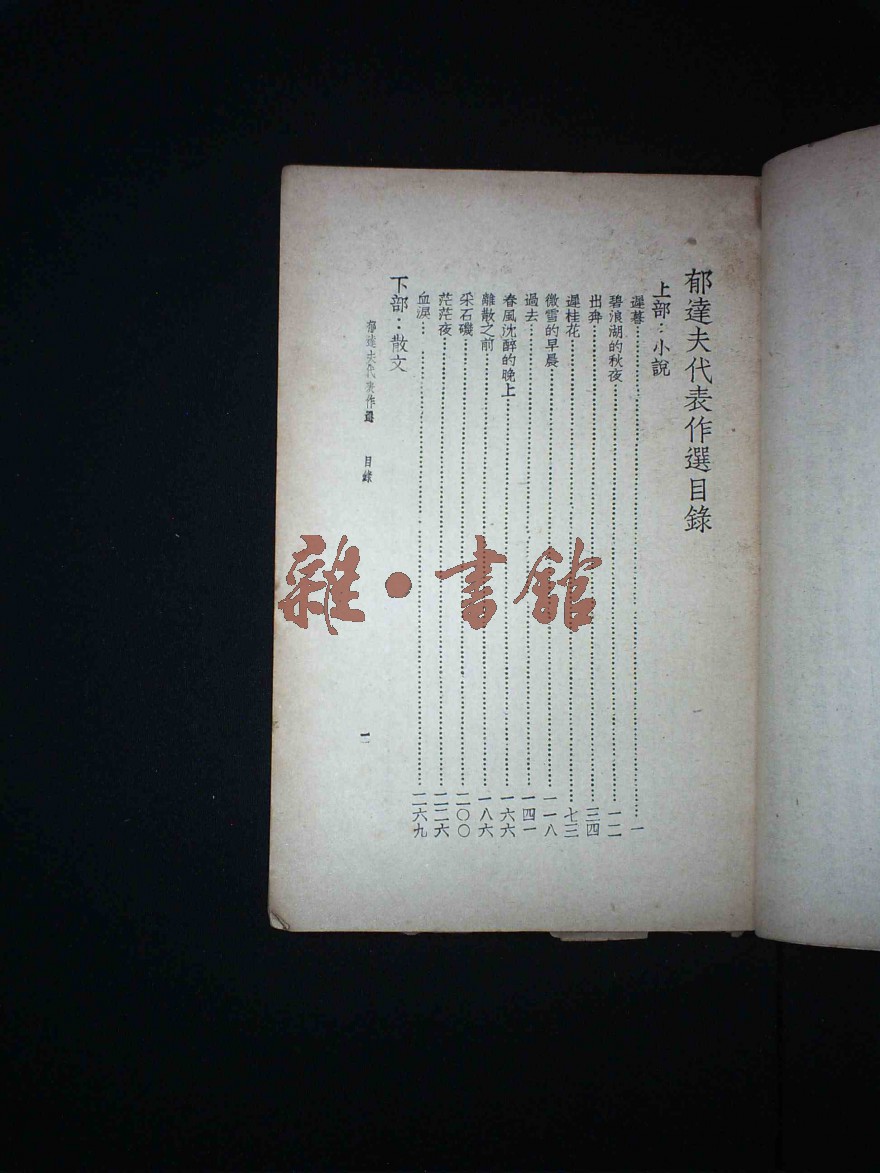 郁達夫代表作選目錄
上部：小說
遲暮……一
碧浪湖的秋夜……一二
出奔……三四
遲桂花……七三
微雪的早晨……一一八
過去……一四一
春風沈醉的晚上……一六六
離散之前……一八六
采石磯……二〇〇
茫茫夜……二二六
血淚……二六九
下部：散文
郁達夫代表作選 目錄
雜·書館